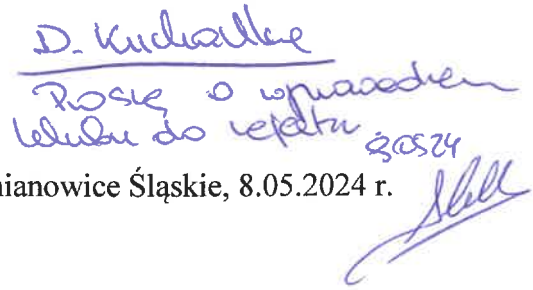 D. Kuchalkę
Proszę o wprowadzenie
klubu do rejestru
8.05.24
mianowice Śląskie, 8.05.2024 r.